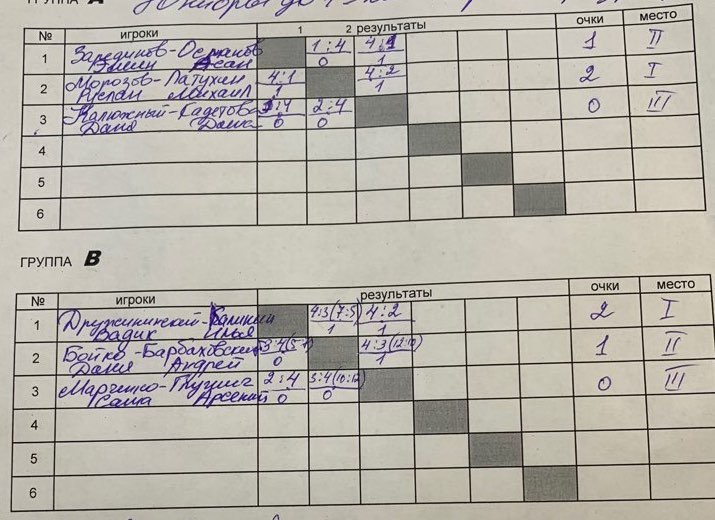 ГРУППА А Юниоры до
№ игроки 1 2 результаты очки место
1 Османов 1:4 4:1 1 II
Эмин Асан 0 1
2 Морозов-Латухин 4:1 4:2 2 I
Руслан Михаил 1 1
3 Калюжный- :4 2:4 0 III
Даня 0 0
4
5
6
ГРУППА В
№ игроки результаты очки место
1 Дружининский-Калинин 4:3(7:5) 4:2 2 I
Вадик Илья 1 1
2 Бойко-Барбаховский 3:4(5:7) 4:3(12:10) 1 II
Даня Андрей 0 1
3 Марченко- 2:4 3:4(10:12) 0 III
Саша Арсений 0 0
4
5
6